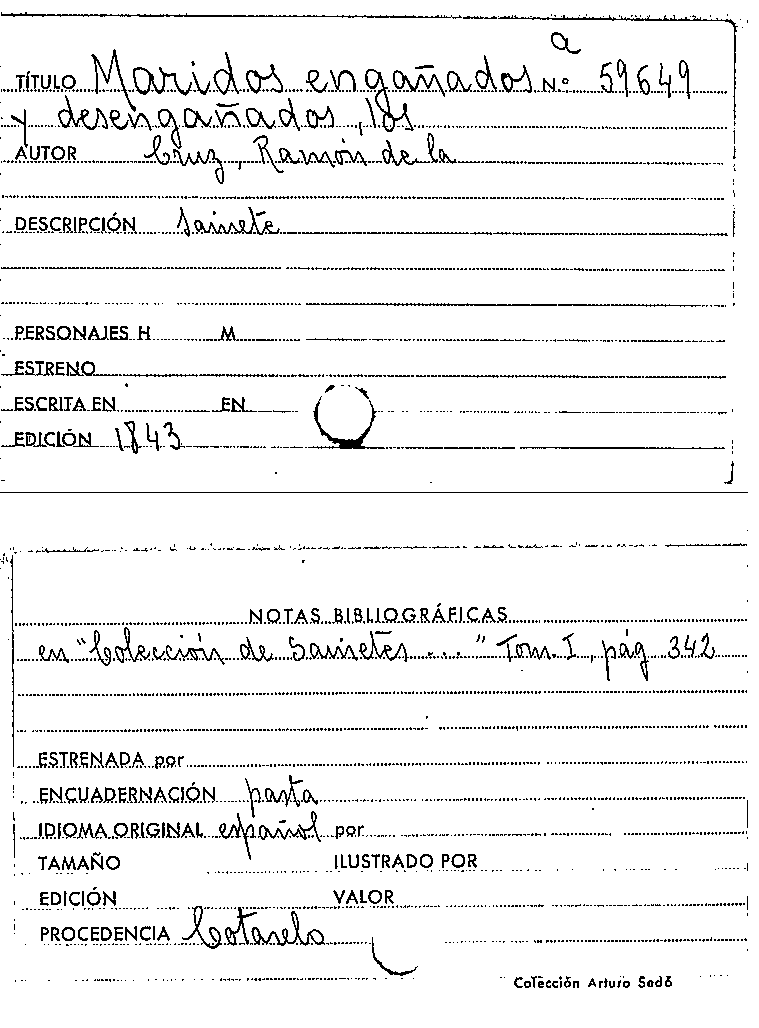 a
TÍTULO Maridos engañados Nº 59649
y desengañados, los
AUTOR Cruz, Ramón de la
DESCRIPCIÓN Sainete
PERSONAJES H M
ESTRENO
ESCRITA EN EN
EDICIÓN 1843
NOTAS BIBLIOGRÁFICAS
en "Colección de Sainetes..." Tom. I, pág 342
ESTRENADA por
ENCUADERNACIÓN pasta
IDIOMA ORIGINAL español por
TAMAÑO ILUSTRADO POR
EDICIÓN VALOR
PROCEDENCIA Cotarelo
Colección Arturo Sedó